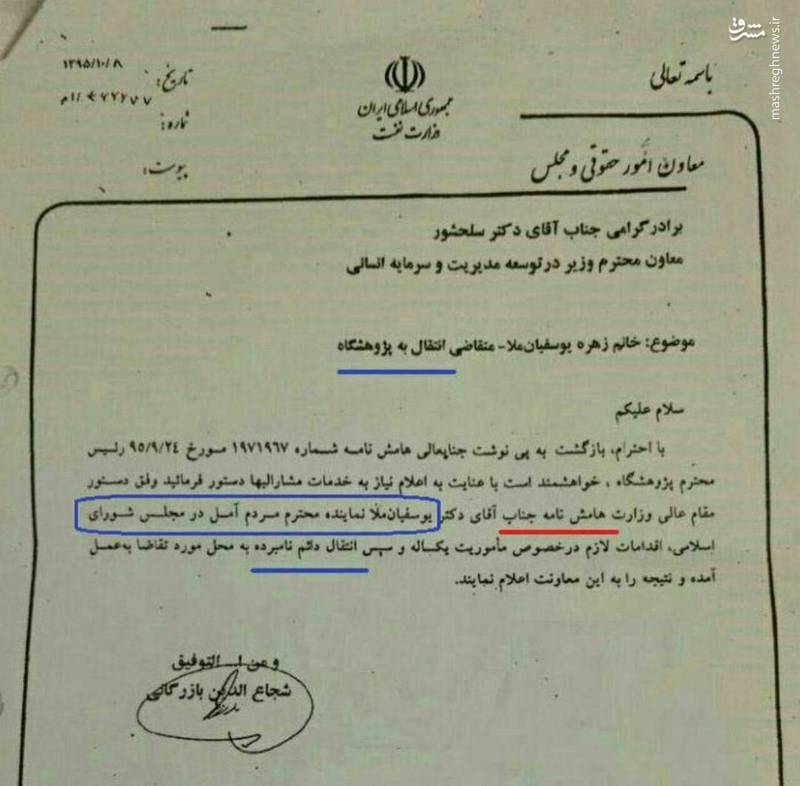 مشرق
mashreghnews.ir
باسمه تعالی
جمهوری اسلامی ایران
وزارت نفت
معاون امور حقوقی و مجلس
تاریخ: ۱۳۹۵/۱۰/۸
شماره:
پیوست:
برادر گرامی جناب آقای دکتر سلحشور
معاون محترم وزیر در توسعه مدیریت و سرمایه انسانی
موضوع: خانم زهره یوسفیان‌ملا- متقاضی انتقال به پژوهشگاه
سلام علیکم
با احترام، بازگشت به پی نوشت جنابعالی هامش نامه شماره ۱۹۷۱۹۶۷ مورخ ۹۵/۹/۲۴ رئیس
محترم پژوهشگاه ، خواهشمند است با عنایت به اعلام نیاز به خدمات مشارالیها دستور فرمائید وفق دستور
مقام عالی وزارت هامش نامه جناب آقای دکتر یوسفیان‌ملا نماینده محترم مردم آمل در مجلس شورای
اسلامی، اقدامات لازم درخصوص مأموریت یکساله و سپس انتقال دائم نامبرده به محل مورد تقاضا به‌عمل
آمده و نتیجه را به این معاونت اعلام نمایند.
و من ا... التوفیق
شجاع الدین بازرگانی